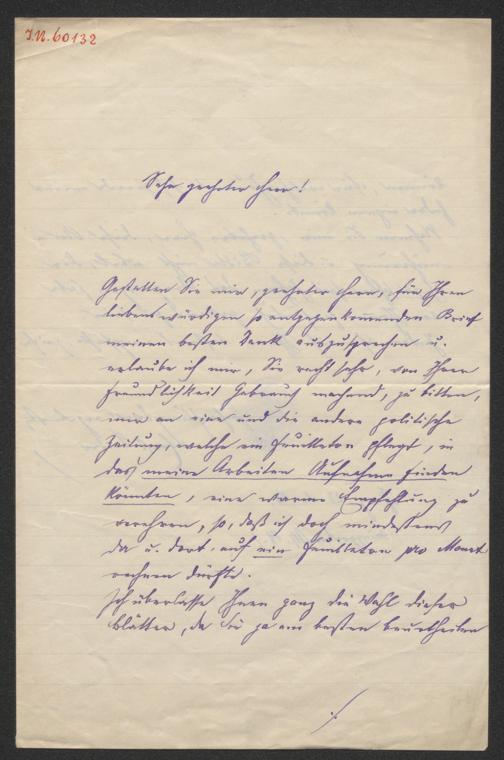 J.N. 60132
Sehr geehrter Herr!
Gestatten Sie mir, geehrter Herr, für Ihren
liebenswürdigen so entgegenkommenden Brief
meinen besten Dank auszusprechen u.
erlaube ich mir, Sie recht sehr, von Ihrer
Freundlichkeit Gebrauch machend, zu bitten,
mir an eine und die andere politische
Zeitung, welche ein Feuilleton pflegt, in
das meine Arbeiten Aufnahme finden
könnten, eine warme Empfehlung zu
so, daß ich doch mindestens
da u. dort auf ein Feuilleton pro Monat
rechnen dürfte.
Ich überlasse Ihnen ganz die Wahl dieser
Blätter, da Sie ja am besten beurtheilen
./.